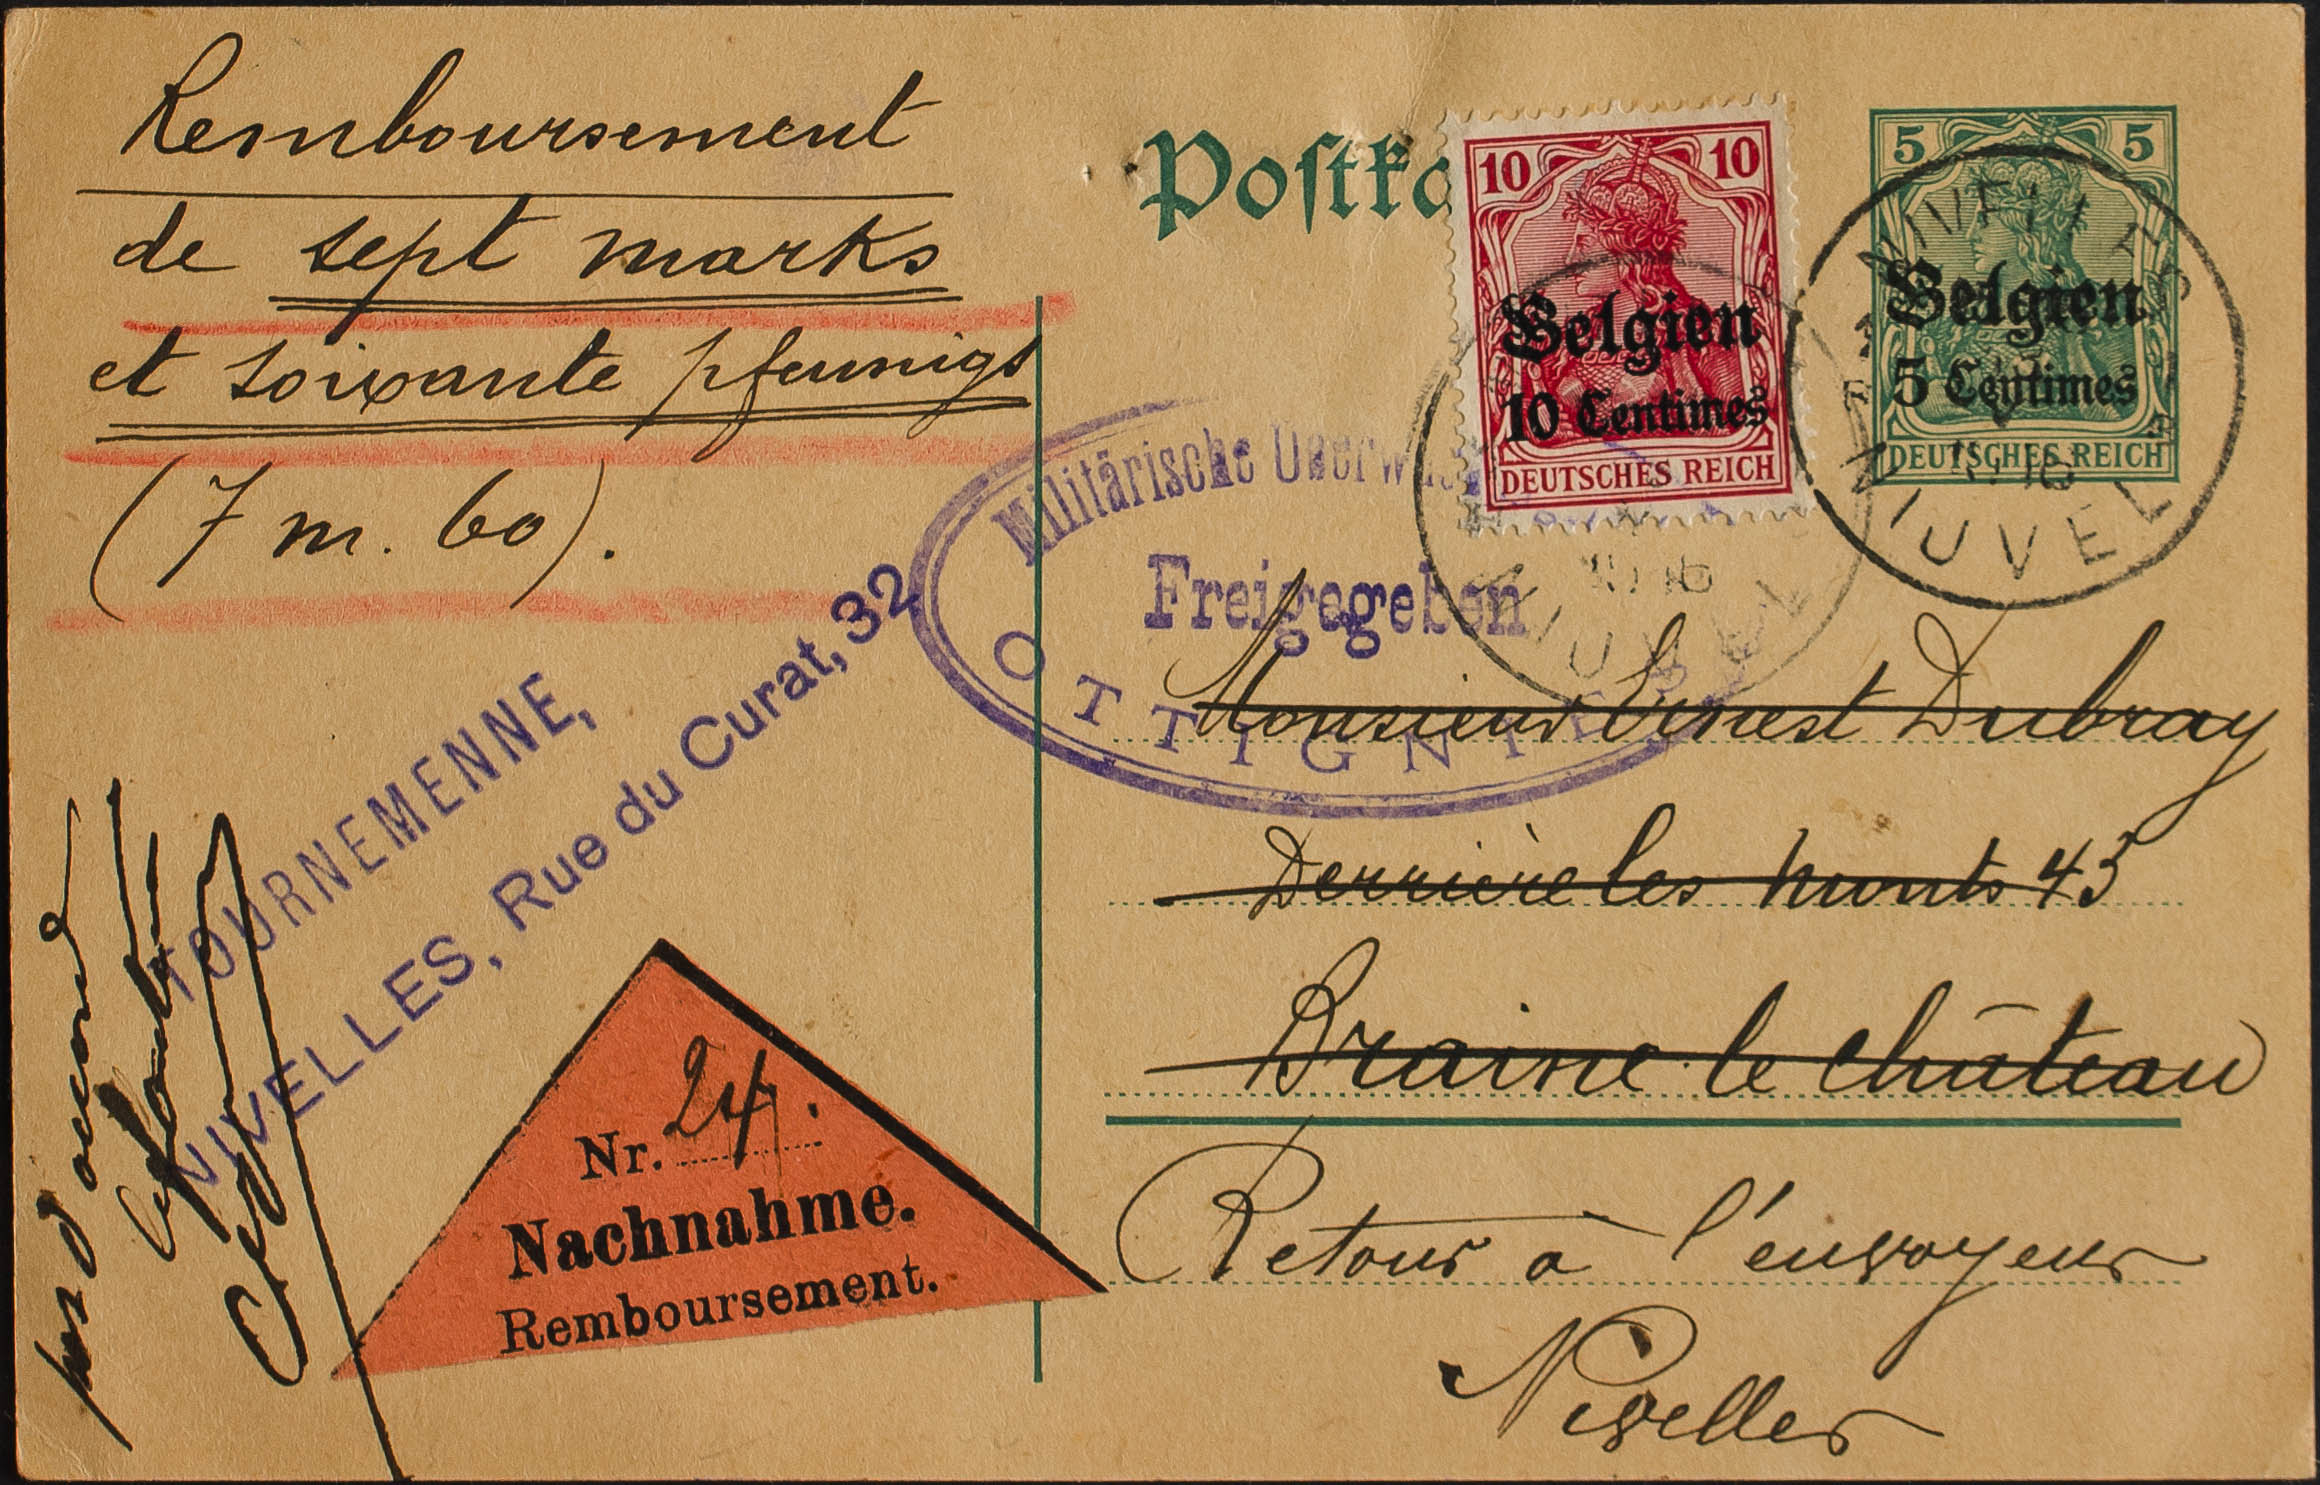 Remboursement
de sept marks
et soixante pfennigs
(7 m. 60).
Postka
10 10
Belgien
10 Centimes
DEUTSCHES REICH
5 5
Belgien
5 Centimes
DEUTSCHES REICH
NIVELLES
16
NIJVEL
16
NIJVEL
Militärische
Freigegeben
OTTIGNIES
TOURNEMENNE,
NIVELLES, Rue du Curat, 32
Monsieur Ernest Dubray
Derrière les monts 43
Braine-le-Château
Retour à l'envoyeur
Nivelles
Nr. 24.
Nachnahme.
Remboursement.